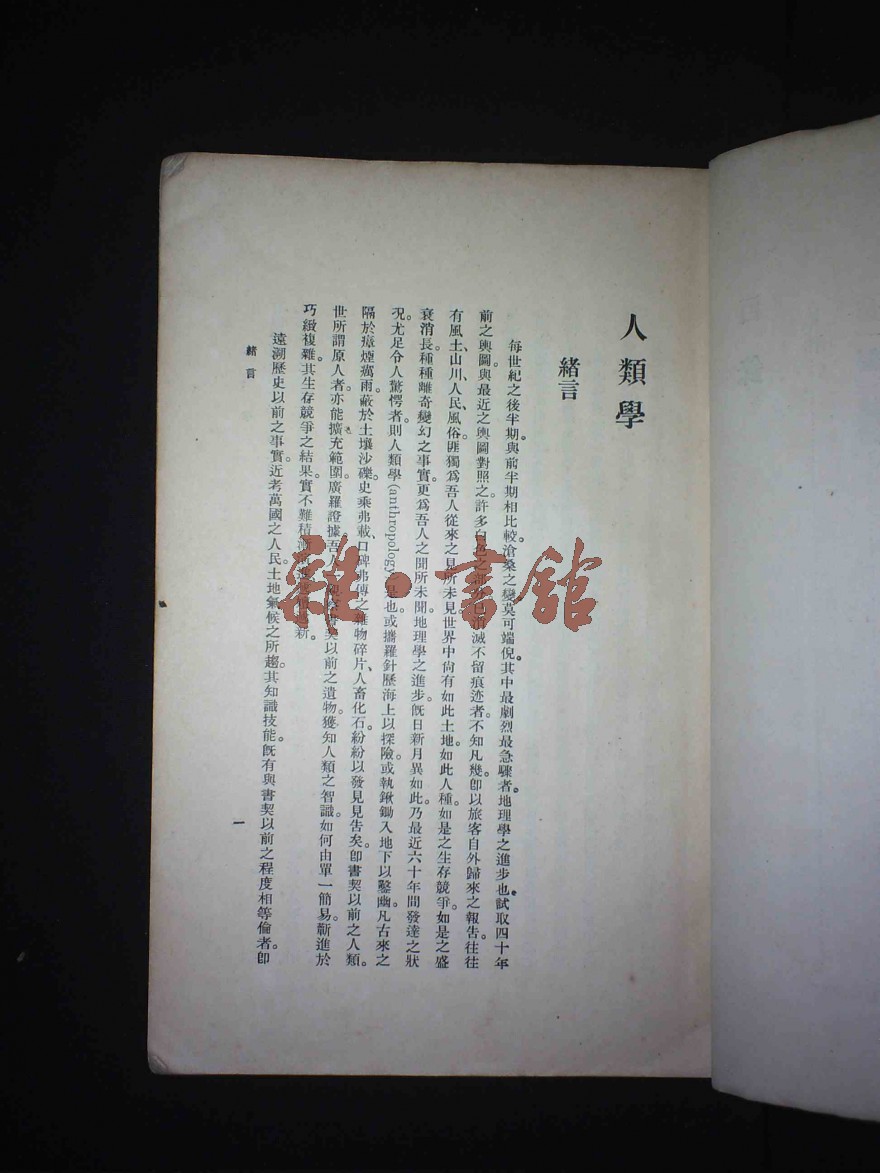 人類學
緒言
每世紀之後半期。與前半期相比較。滄桑之變。莫可端倪。其中最劇烈最急驟者。地理學之進步也。試取四十年
前之輿圖。與最近之輿圖對照之。許多白色之部分已消滅不留痕迹者。不知凡幾。卽以旅客自外歸來之報告。往往
有風土、山川、人民、風俗。匪獨爲吾人從來之見所未見。世界中尙有如此土地。如此人種。如是之生存競爭。如是之盛
衰消長。種種離奇變幻之事實。更爲吾人之聞所未聞。地理學之進步。旣日新月異如此。乃最近六十年間發達之狀
況。尤足令人驚愕者。則人類學(anthropology)是也。或攜羅針歷海上以探險。或執鍬鋤入地下以鑿幽。凡古來之
隔於瘴煙癘雨、蔽於土壤沙礫。史乘弗載、口碑弗傳之雜物碎片、人畜化石。紛紛以發見見吿矣。卽書契以前之人類。
世所謂原人者。亦能擴充範圍。廣羅證據。吾人書契以前之遺物。獲知人類之智識如何由單一簡易。漸進於
巧緻複雜。其生存競爭之結果。實不難積新。
遠溯歷史以前之事實。近考萬國之人民土地氣候之所趨。其知識技能。旣有與書契以前之程度相等倫者。卽
緒言
一
雜·書館